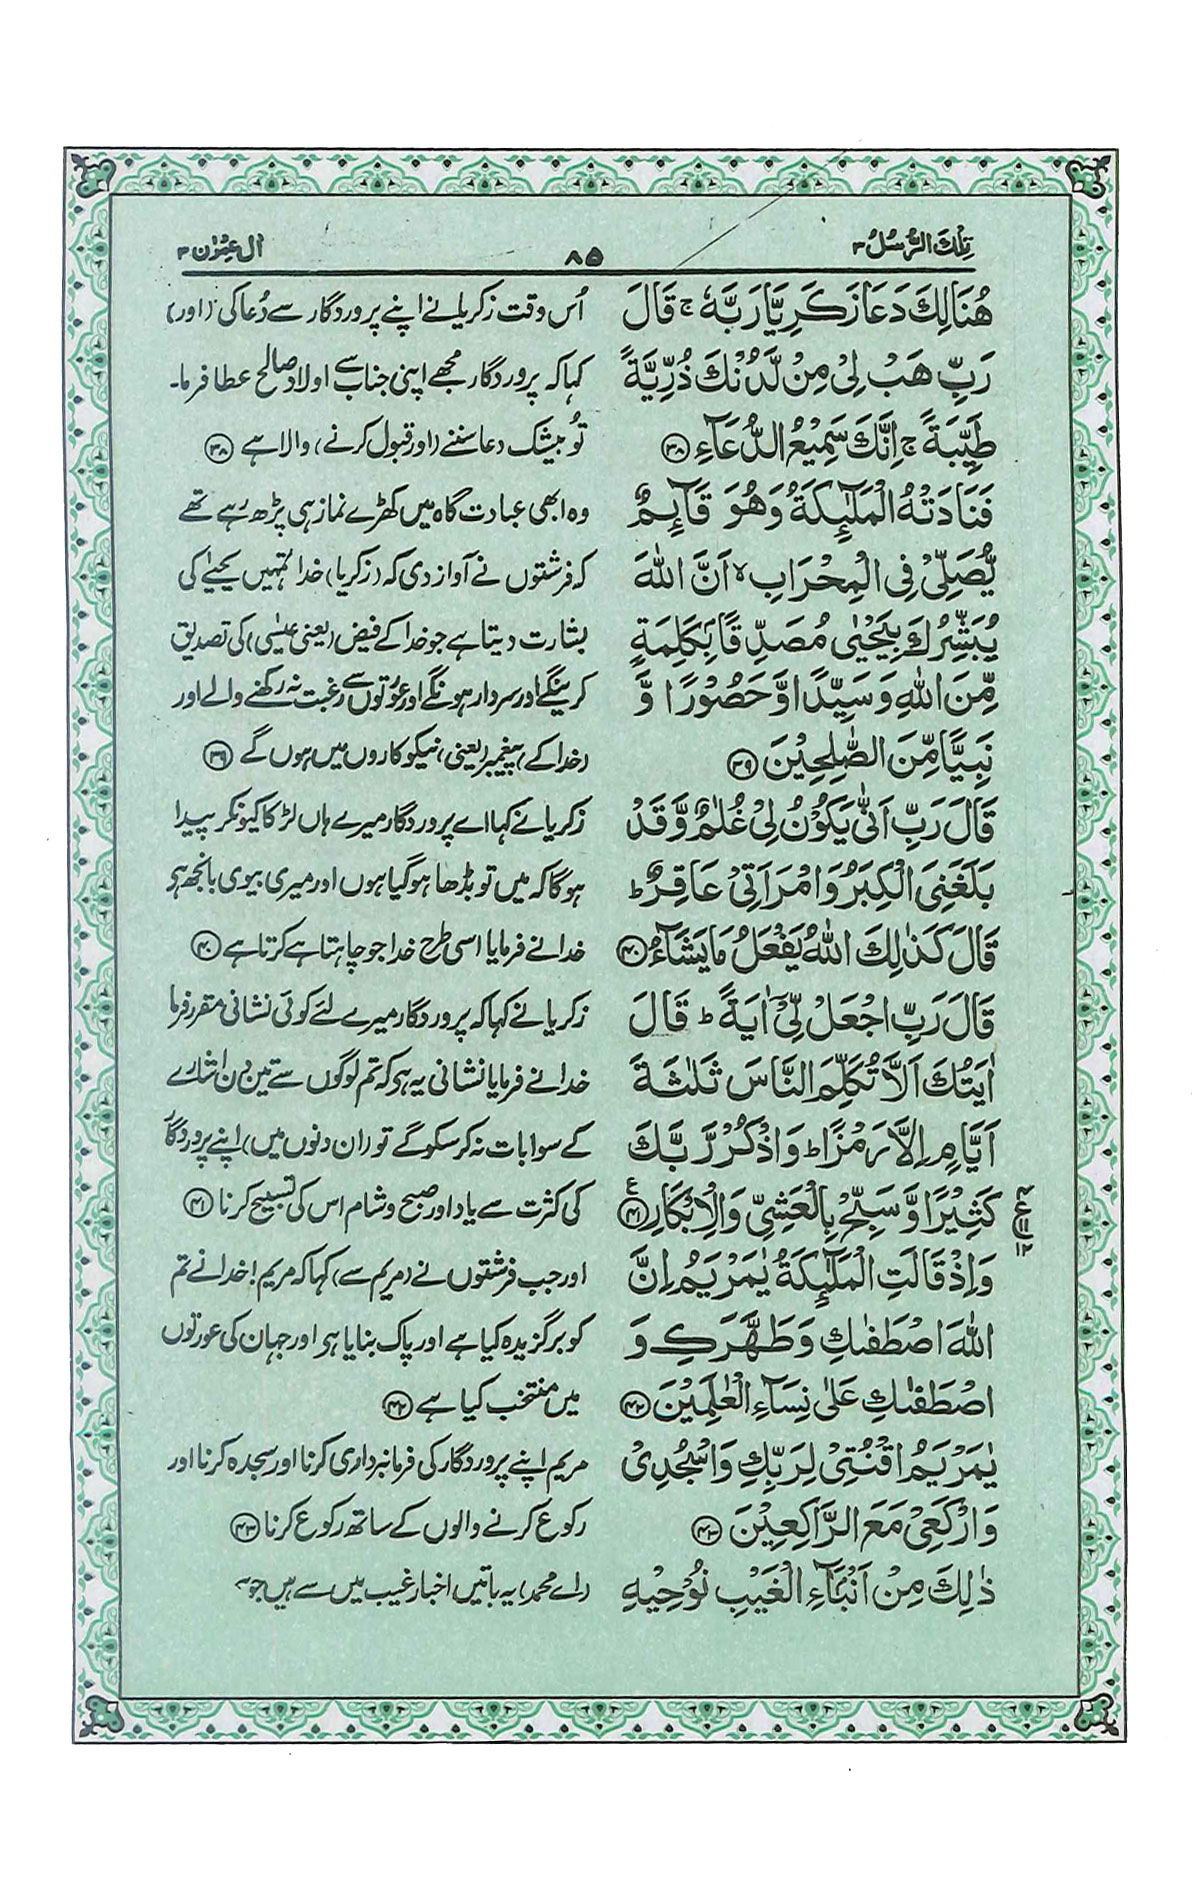 تِلْكَ الرُّسُلُ ۳
۸۵
اٰلِ عِمْرٰن ۳
هُنَالِكَ دَعَا زَكَرِيَّا رَبَّهٗ ۚ قَالَ
رَبِّ هَبْ لِىْ مِنْ لَّدُنْكَ ذُرِّيَّةً
طَيِّبَةً ۚ اِنَّكَ سَمِيْعُ الدُّعَآءِ ﴿۳۸﴾
فَنَادَتْهُ الْمَلٰٓئِكَةُ وَهُوَ قَآئِمٌ
يُّصَلِّىْ فِى الْمِحْرَابِ ۙ اَنَّ اللّٰهَ
يُبَشِّرُكَ بِيَحْيٰى مُصَدِّقًاۢ بِكَلِمَةٍ
مِّنَ اللّٰهِ وَسَيِّدًا وَّحَصُوْرًا وَّ
نَبِيًّا مِّنَ الصّٰلِحِيْنَ ﴿۳۹﴾
قَالَ رَبِّ اَنّٰى يَكُوْنُ لِىْ غُلٰمٌ وَّقَدْ
بَلَغَنِىَ الْكِبَرُ وَامْرَاَتِىْ عَاقِرٌ ؕ
قَالَ كَذٰلِكَ اللّٰهُ يَفْعَلُ مَا يَشَآءُ ﴿۴۰﴾
قَالَ رَبِّ اجْعَلْ لِّىْٓ اٰيَةً ؕ قَالَ
اٰيَتُكَ اَلَّا تُكَلِّمَ النَّاسَ ثَلٰثَةَ
اَيَّامٍ اِلَّا رَمْزًا ؕ وَاذْكُرْ رَّبَّكَ
كَثِيْرًا وَّسَبِّحْ بِالْعَشِىِّ وَالْاِبْكَارِ ﴿۴۱﴾ ع
وَاِذْ قَالَتِ الْمَلٰٓئِكَةُ يٰمَرْيَمُ اِنَّ
اللّٰهَ اصْطَفٰىكِ وَطَهَّرَكِ وَ
اصْطَفٰىكِ عَلٰى نِسَآءِ الْعٰلَمِيْنَ ﴿۴۲﴾
يٰمَرْيَمُ اقْنُتِىْ لِرَبِّكِ وَاسْجُدِىْ
وَارْكَعِىْ مَعَ الرّٰكِعِيْنَ ﴿۴۳﴾
ذٰلِكَ مِنْ اَنْۢبَآءِ الْغَيْبِ نُوْحِيْهِ
اُس وقت زکریا نے اپنے پروردگار سے دُعا کی (اور)
کہا کہ پروردگار مجھے اپنی جناب سے اولاد صالح عطا فرما۔
تُو بیشک دعا سننے (اور قبول کرنے) والا ہے ﴿۳۸﴾
وہ ابھی عبادت گاہ میں کھڑے نماز ہی پڑھ رہے تھے
کہ فرشتوں نے آواز دی کہ (زکریا) خدا تمہیں یحییٰ کی
بشارت دیتا ہے جو خدا کے فیض (یعنی عیسٰی) کی تصدیق
کرینگے اور سردار ہونگے اور عورتوں سے رغبت نہ رکھنے والے اور
(خدا کے) پیغمبر (یعنی) نیکو کاروں میں ہوں گے ﴿۳۹﴾
زکریا نے کہا اے پروردگار میرے ہاں لڑکا کیونکر پیدا
ہو گا کہ میں تو بڈھا ہو گیا ہوں اور میری بیوی بانجھ ہی
خدا نے فرمایا اسی طرح خدا جو چاہتا ہے کرتا ہے ﴿۴۰﴾
زکریا نے کہا کہ پروردگار میرے لئے کوئی نشانی مقرر فرما
خدا نے فرمایا نشانی یہ ہی کہ تم لوگوں سے تین دن اشارے
کے سوا بات نہ کر سکو گے تو (ان دنوں میں) اپنے پروردگار
کی کثرت سے یاد اور صبح و شام اس کی تسبیح کرنا ﴿۴۱﴾
اور جب فرشتوں نے (مریم سے) کہا کہ مریم! خدا نے تم
کو برگزیدہ کیا ہے اور پاک بنایا ہی اور جہان کی عورتوں
میں منتخب کیا ہے ﴿۴۲﴾
مریم اپنے پروردگار کی فرمانبرداری کرنا اور سجدہ کرنا اور
رکوع کرنے والوں کے ساتھ رکوع کرنا ﴿۴۳﴾
(اے محمد) یہ باتیں اخبار غیب میں سے ہیں جو